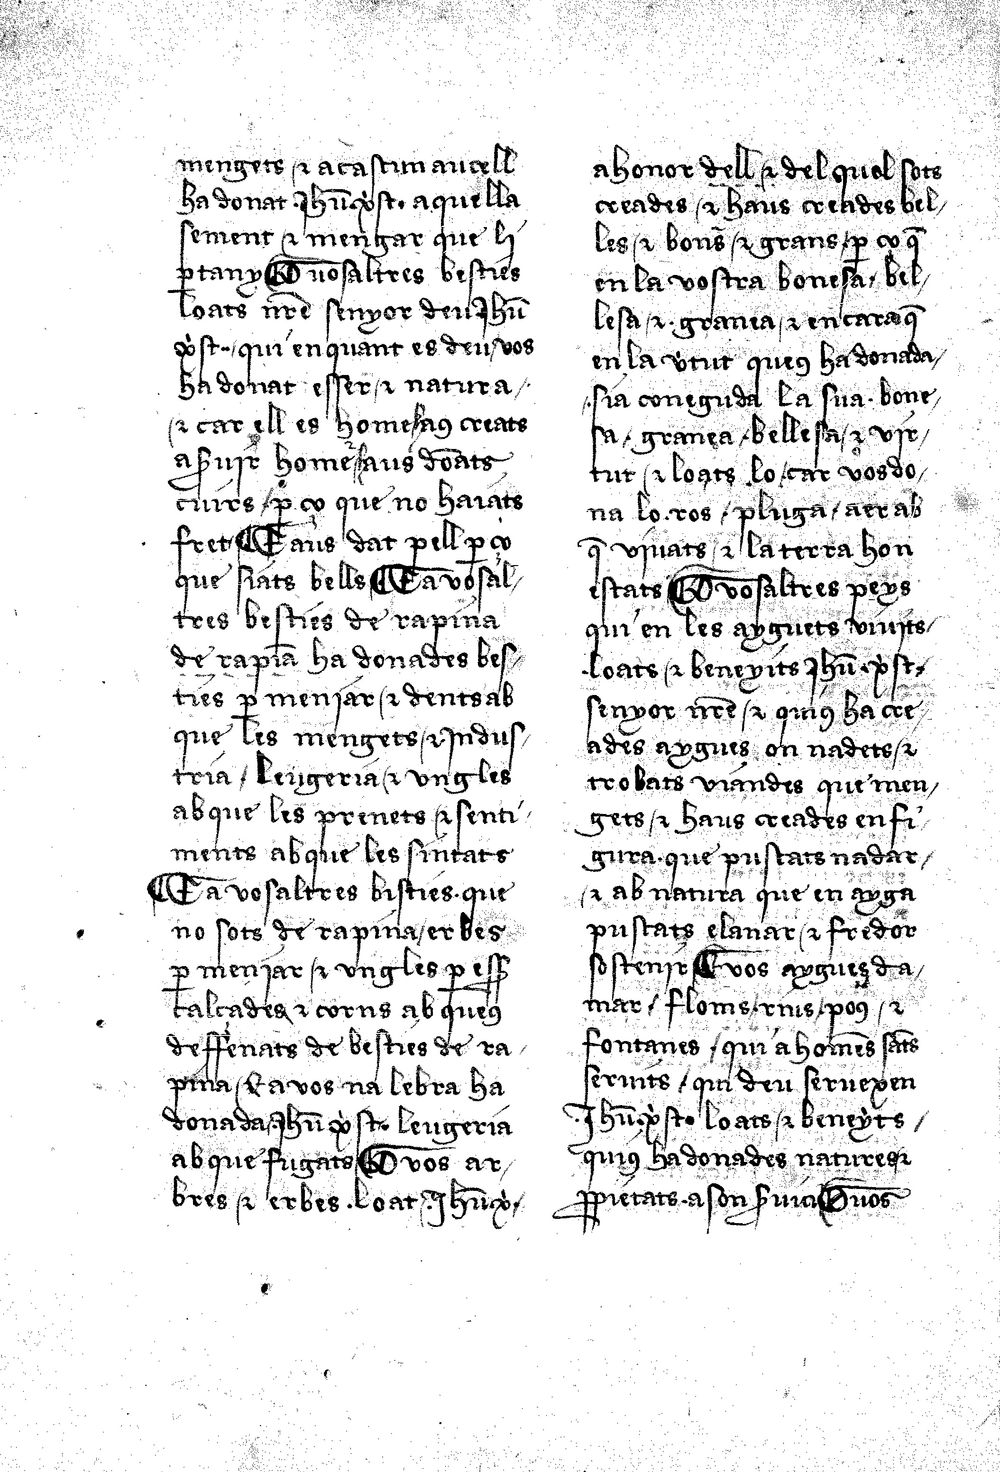 mengets / ⁊ a cascun aucell
ha donat Jhū xp̄st · aquella
sement ⁊ mengar que li
ꝑtany ¶ O vosaltres besties
loats nr̄e senyor deu Jhū
xp̄st · / qui en quant es deu / vos
ha donat esser / ⁊ natura /
/ ⁊ car ell es home / haꝯ creats
a s̄uir home / haus dōats
cuirs / ꝑ ço que no haiats
fret ¶ E aus dat pell ꝑ ço
que siats bells ¶ E a vosal /
tres besties de rapina
de rapīa ha donades bes /
ties ꝑ menjar / ⁊ dents ab
que les mengets / ⁊ Indus /
tria / leugeria / ⁊ vngles
ab que les prenets / ⁊ senti /
ments ab que les sintats
¶ E a vosaltres bisties · que
no sots de rapina / erbes
ꝑ menjar / ⁊ vngles ꝑ esser
calcades ⁊ corns ab queꝯ
deffenats de besties de ra /
pina / E a vos na lebra ha
donada / Jhū xp̄st · leugeria
ab que fugats ¶ O vos ar /
bres / ⁊ erbes · loat / Jhū xp̄ /
a honor dell / ⁊ del qual sots
creades / ⁊ haus creades bel /
les / ⁊ bons / ⁊ grans / ꝑ ço q̄
en la vostra bonesa / bel /
lesa / ⁊ · granea / ⁊ encara q̄
en la v̄tut queꝯ ha donada /
/ sia coneguda la sua · bone /
sa / granea / bellesa / ⁊ vir /
tut / ⁊ loats lo / car vos do /
na lo · ros / pluga / aer ab
q̄ viuats / ⁊ la terra hon
estats ¶ O vosaltres peys
qui en les aygues viuits /
· loats / ⁊ beneyits Jhū · xp̄st /
senyor nr̄e / ⁊ quiꝯ ha cre /
ades aygues on nadets / ⁊
trobats viandes que men /
gets / ⁊ haus creades en fi /
gura · que pustats nadar /
/ ⁊ ab natura que en ayga
pustats elanar / ⁊ fredor
sostenir ¶ E vos aygues da /
mar / floms / rius / poꝯ / ⁊
fontanes / qui a homēs sāts
seruits / qui deu seruexen
· Jhū xp̄st · loats / ⁊ beneyts /
quiꝯ ha donades natures ⁊
ꝓpietats · a son s̄uici ¶ O vos